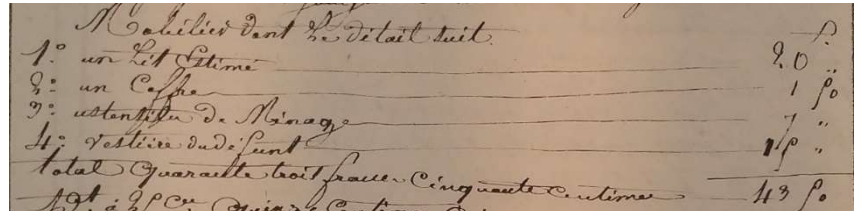 Mobilier dont le détail suit. f.
1.° un Lit Estimé 20 "
2.° un Coffre 1 50
3.° ustensiles de Ménage 7 "
4.° vestiaire du défunt 15 "
total Quarante trois francs Cinquante Centimes 43 50